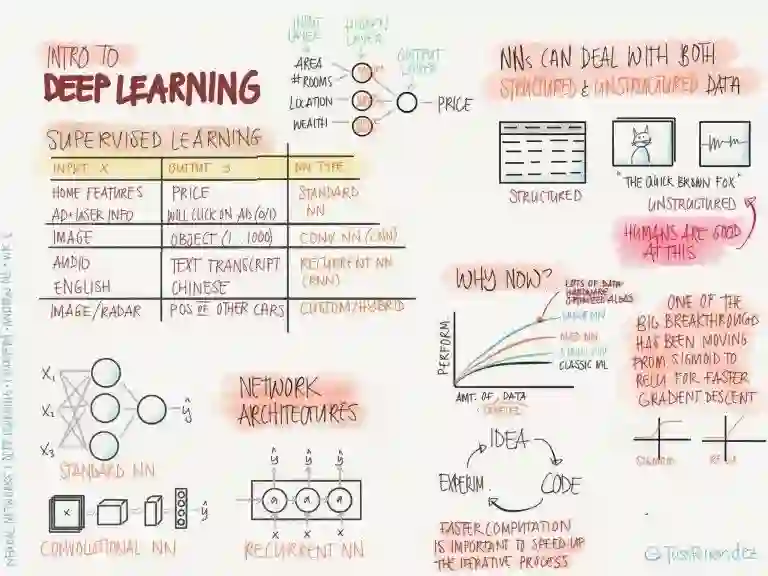 INTRO TO
DEEP LEARNING
INPUT LAYER
HIDDEN LAYER
OUTPUT LAYER
AREA
# ROOMS
LOCATION
WEALTH
PRICE
SUPERVISED LEARNING
INPUT X OUTPUT y NN TYPE
HOME FEATURES PRICE STANDARD
AD+USER INFO WILL CLICK ON AD (0/1) NN
IMAGE OBJECT (1...1000) CONV NN (CNN)
AUDIO TEXT TRANSCRIPT RECURRENT NN
ENGLISH CHINESE (RNN)
IMAGE/RADAR POS OF OTHER CARS CUSTOM/HYBRID
X₁
X₂
X₃
ŷ
STANDARD NN
x
ŷ
CONVOLUTIONAL NN
NETWORK
ARCHITECTURES
ŷ ŷ ŷ
a a a
x x x
RECURRENT NN
NNs CAN DEAL WITH BOTH
STRUCTURED & UNSTRUCTURED DATA
STRUCTURED
"THE QUICK BROWN FOX"
UNSTRUCTURED
HUMANS ARE GOOD
AT THIS
WHY NOW?
LOTS OF DATA
HARDWARE
OPTIMIZED ALGOS
LARGE NN
MED NN
SMALL NN
CLASSIC ML
PERFORM.
AMT. OF DATA
IDEA
CODE
EXPERIM.
FASTER COMPUTATION
IS IMPORTANT TO SPEED UP
THE ITERATIVE PROCESS
ONE OF THE
BIG BREAKTHROUGHS
HAS BEEN MOVING
FROM SIGMOID TO
RELU FOR FASTER
GRADIENT DESCENT
SIGMOID
RELU